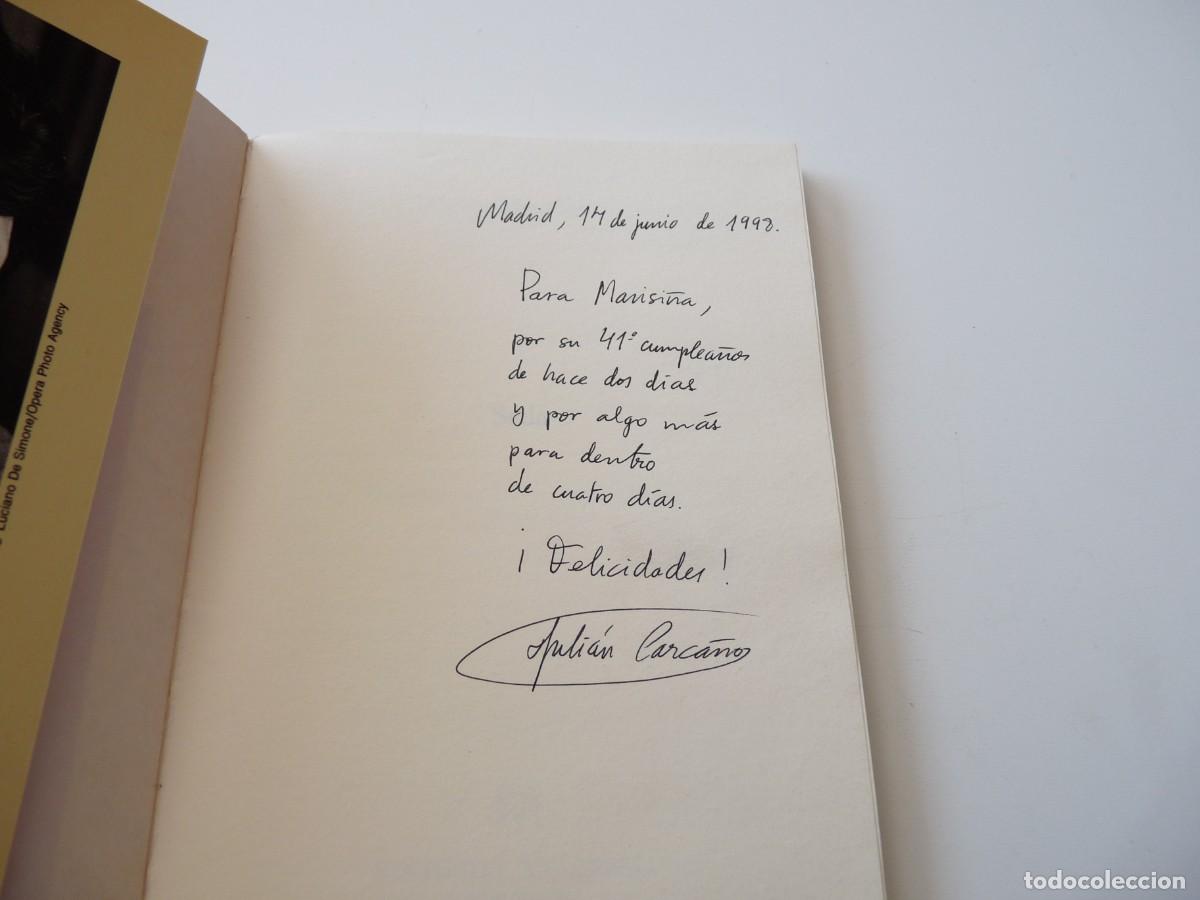 Luciano De Simone/Opera Photo Agency
Madrid, 14 de junio de 1998.
Para Marisiña,
por su 41º cumpleaños
de hace dos días
y por algo más
para dentro
de cuatro días.
¡Felicidades!
Julián Carcaño
todocoleccion